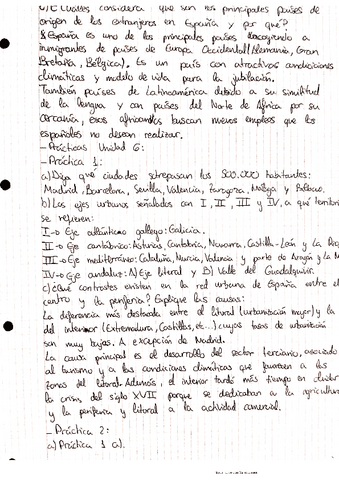 c) ¿Cuáles considera que son los principales países de
origen de los extranjeros en España y por qué?
España es uno de los principales países acogiendo a
inmigrantes de países de Europa Occidental (Alemania, Gran
Bretaña, Bélgica). Es un país con atractivas condiciones
climáticas y modelo de vida para la jubilación.
También países de Latinoamérica debido a su similitud
de la lengua y con países del Norte de África por su
cercanía, esos africanos buscan nuevos empleos que los
españoles no desean realizar.
- Prácticas Unidad 6:
- Práctica 1:
a) Diga qué ciudades sobrepasan los 500.000 habitantes:
Madrid, Barcelona, Sevilla, Valencia, Zaragoza, Málaga y Bilbao.
b) Los ejes urbanos señalados con I, II, III y IV, a qué territorios
se refieren:
I → Eje atlántico gallego: Galicia.
II → Eje cantábrico: Asturias, Cantabria, Navarra, Castilla-León y La
III → Eje mediterráneo: Cataluña, Murcia, Valencia y parte de Aragón y la
IV → Eje andaluz: A) Eje litoral y B) Valle del Guadalquivir.
c) ¿Qué contrastes existen en la red urbana de España entre el
centro y la periferia? Explique las causas:
La diferencia más destacada entre el litoral (urbanización mayor) y la
del interior (Extremadura, Castillas, etc...) cuyas tasas de urbanización
son muy bajas. A excepción de Madrid.
La causa principal es el desarrollo del sector terciario, asociado
al turismo y a las condiciones climáticas que favorecen a las
zonas del litoral. Además, el interior tardó más tiempo en
la crisis del siglo XVII porque se dedicaban a la agricultura
y la periferia y litoral a la actividad comercial.
- Práctica 2:
a) Práctica 1 a).